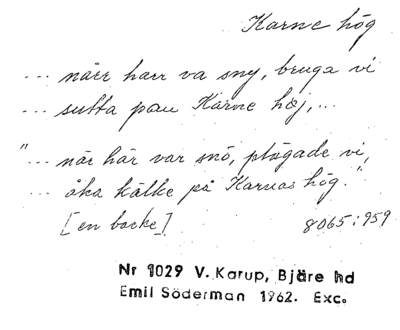 Karne hög
... närr harr va sny, bruga vi
... sutta pau Karne høj,...
"... när här var snö, plägade vi,
... åka kälke på Karnas hög."
[en backe]
8065:959
Nr 1029 V. Karup, Bjäre hd
Emil Söderman 1962. Exc.